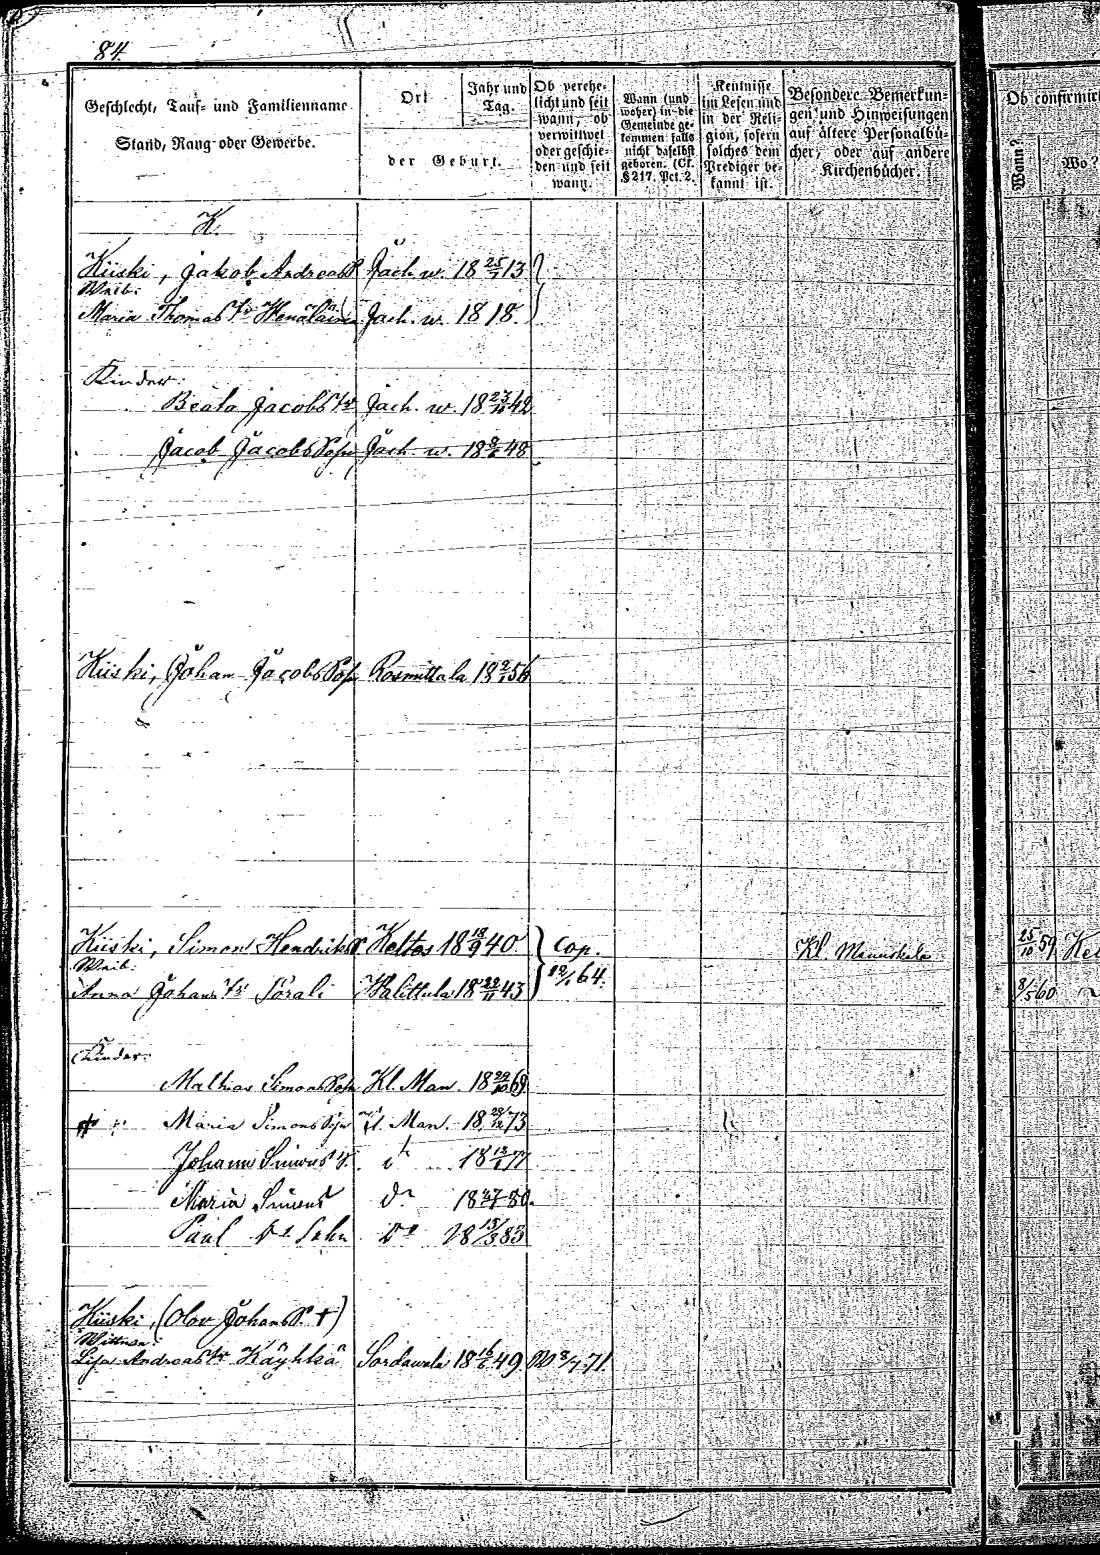 84.
Geschlecht, Tauf- und Familienname
Stand, Rang oder Gewerbe.
Ort
Jahr und Tag.
der Geburt.
Ob verehelicht und seit wann, ob verwittwet oder geschieden und seit wann.
Wann (und woher) in die Gemeinde gekommen falls nicht daselbst geboren. (Cf. § 217. Pct. 2.
Kentnisse im Lesen und in der Religion, sofern solches dem Prediger bekannt ist.
Besondere Bemerkungen und Hinweisungen auf ältere Personalbücher, oder auf andere Kirchenbücher.
Ob confirmirt
Wann?
Wo?
K.
Kiiski, Jakob Andreas S. Jäch. w. 18 25/7 13
Weib:
Maria Thomas tr Jäch. w. 1818.
Kinder:
Beata Jacobs tr Jäch. w. 18 42
Jacob Jacobs Sohn Jäch. w. 18 48
Kiiski, Johan Jacobs Sohn Rosmittala 18 56
Kiiski, Simon Hendriks S. Keltos 18 18/9 40 cop. Kl. Mannskala 25/10 59
Weib:
Anna Johans tr Sorali Walittula 18 22/11 43 64. 8/5 60
Kinder:
Mathias Simons Sohn Kl. Man. 18 69.
Maria Simons Kl. Man. 18 73
Johann Simons S. 18 77
Maria Simons do 18 80.
Paul Sohn do 18 13/3 83
Kiiski, (Olov Johans S. †)
Wittwe:
Lisa Andreas tr Käyhkä Sordawala 18 49. 71.